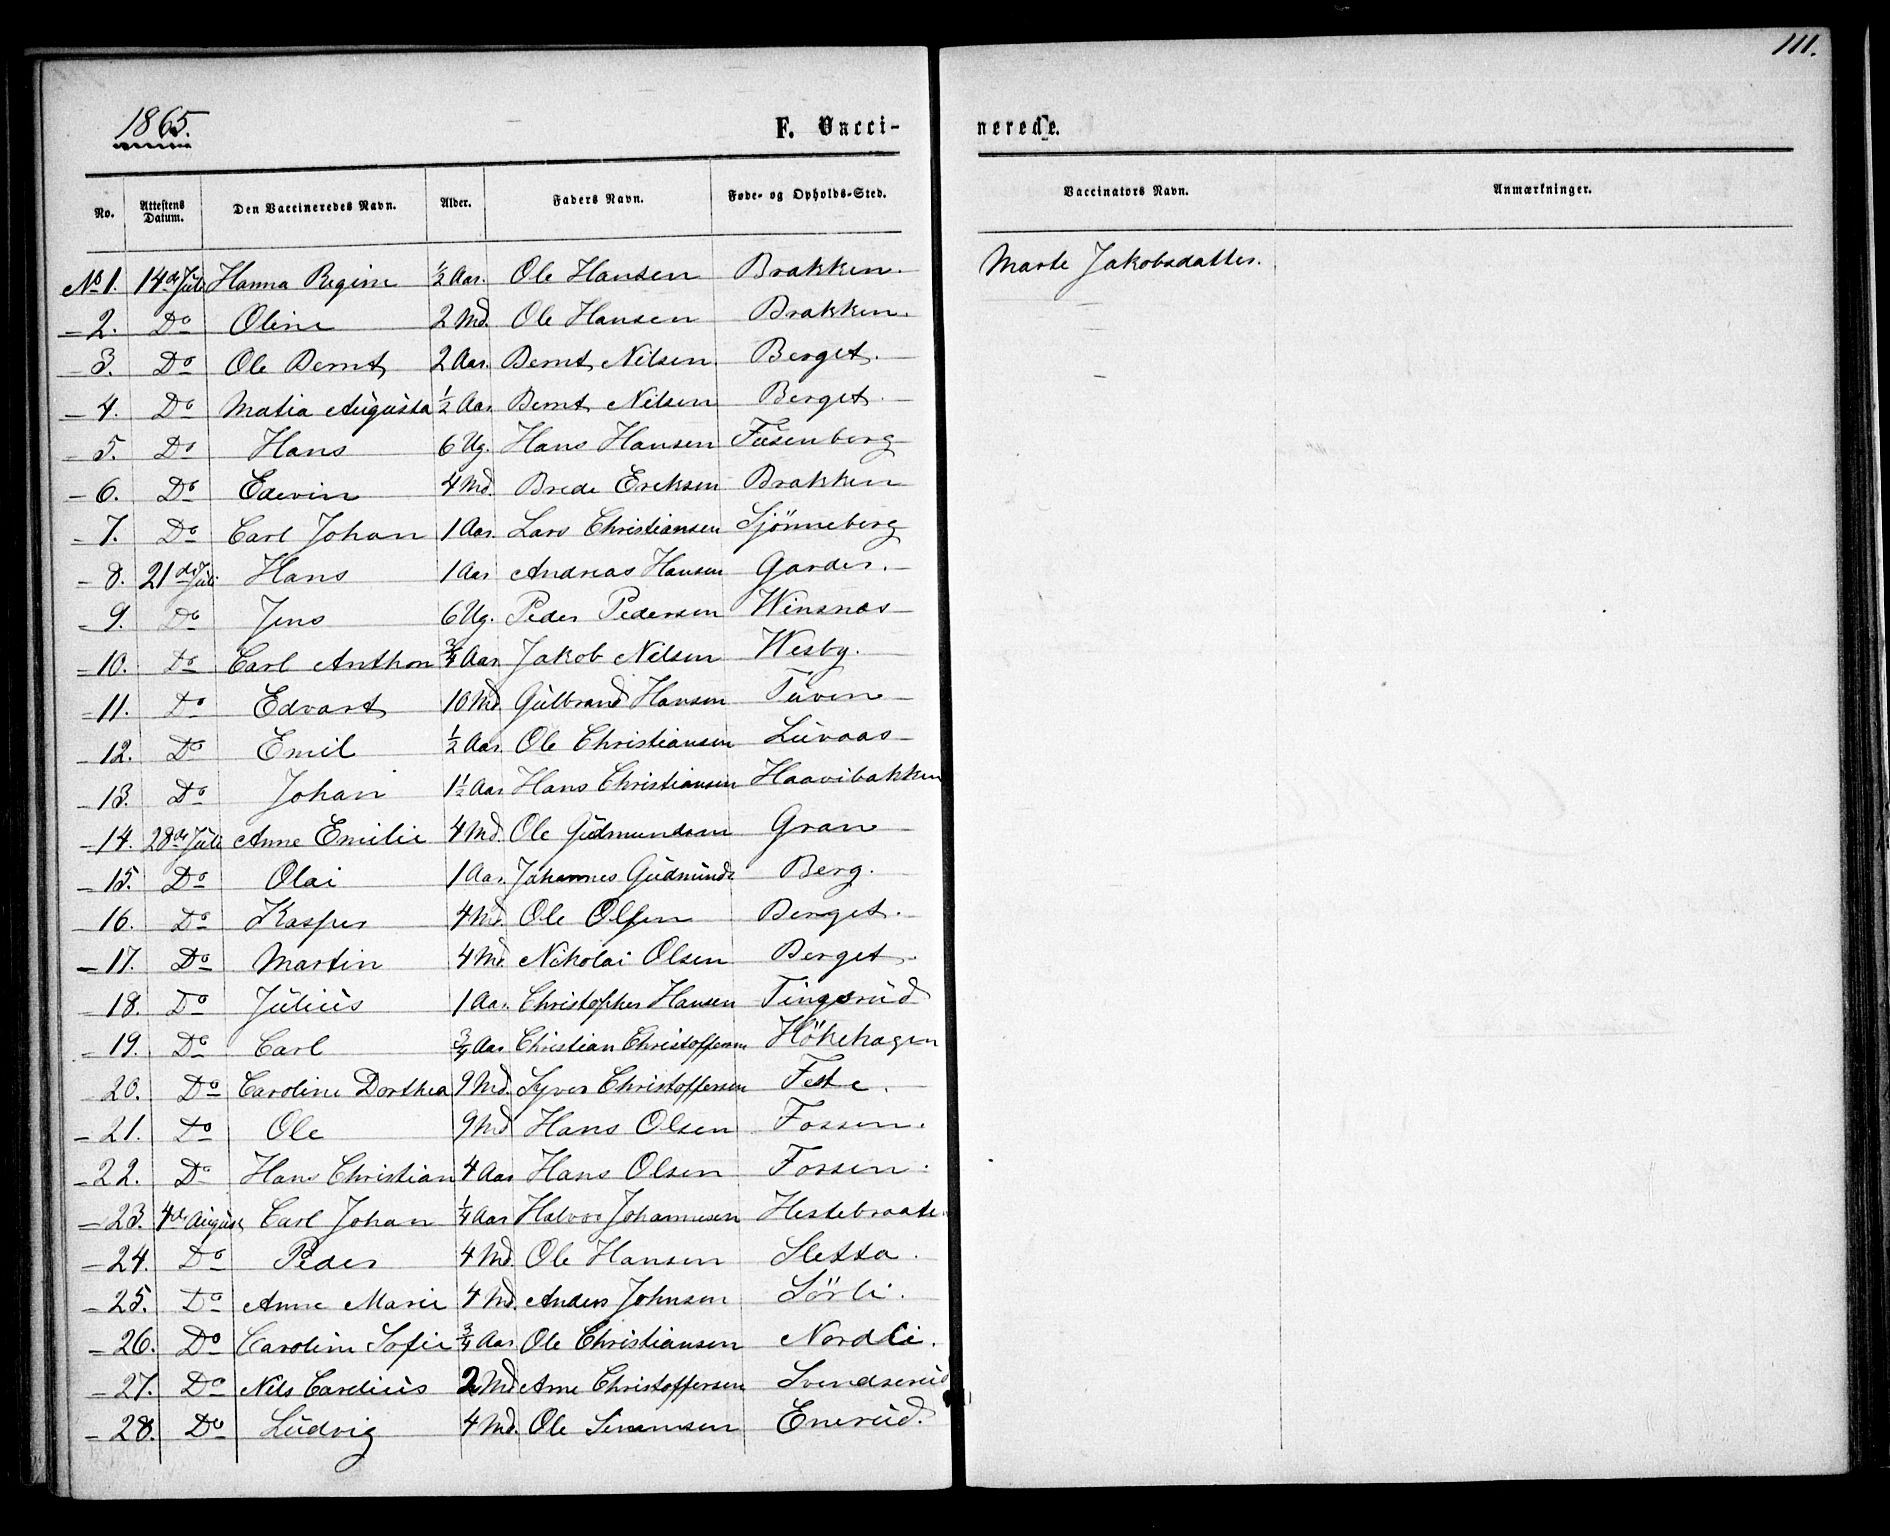 111.
1865.
F. Vacci-
nerede.
No. Attestens Datum. Den Vaccineredes Navn. Alder. Faders Navn. Føde- og Opholds-Sted. Vaccinators Navn. Anmærkninger.
No 1. 14de Juli Hanna Regine ½ Aar. Ole Hansen Brakken. Marte Jakobsdatter.
- 2. Do Oline 2 Md. Ole Hansen Brakken.
- 3. Do Ole Bernt 2 Aar. Bernt Nilsen Berget.
- 4. Do Matia Augusta ½ Aar Bernt Nilsen Berget.
- 5. Do Hans 6 Ug. Hans Hansen Fusenberg
- 6. Do Edevin 4 Md. Brede Ereksen Brakken
- 7. Do Carl Johan 1 Aar. Lars Christiansen Sjönneberg
- 8. 21de Juli Hans 1 Aar Andreas Hansen Garder.
- 9. Do Jens 6 Ug. Peder Pedersen Winsnæs
- 10. Do Carl Anthon ¾ Aar. Jakob Nilsen Wesby.
- 11. Do Edvart 10 Md. Gulbrand Hansen Tuven
- 12. Do Emil ½ Aar. Ole Christiansen Luvaas
- 13. Do Johan 1½ Aar Hans Christiansen Haavibakken
- 14. 28de Juli Anne Emilie 4 Md. Ole Gudmundsen Gran
- 15. Do Olai 1 Aar. Johannes Gudmunds Berg.
- 16. Do Kasper 4 Md. Ole Olsen Berget.
- 17. Do Martin 4 Md. Nikolai Olsen Berget.
- 18. Do Julius 1 Aar. Christopher Hansen Tingsrud
- 19. Do Carl ¾ Aar Christian Christoffersen Hökehagen
- 20. Do Caroline Dorthea 9 Md. Syver Christoffersen Feste.
- 21. Do Ole 9 Md Hans Olsen Fossen.
- 22. Do Hans Christian 4 Aar Hans Olsen Fossen.
- 23. 4de August Carl Johan ¼ Aar Halvor Johannesen Hestebraate
- 24. Do Peder 4 Md. Ole Hansen Sletta.
- 25. Do Anne Marie 4 Md. Anders Johnsen Sörli.
- 26. Do Caroline Sofie ¾ Aar Ole Christiansen Nordli.
- 27. Do Nils Carelius 2 Md Arne Christoffersen Svendserud
- 28. Do Ludvig 4 Md. Ole Simensen Enerud.